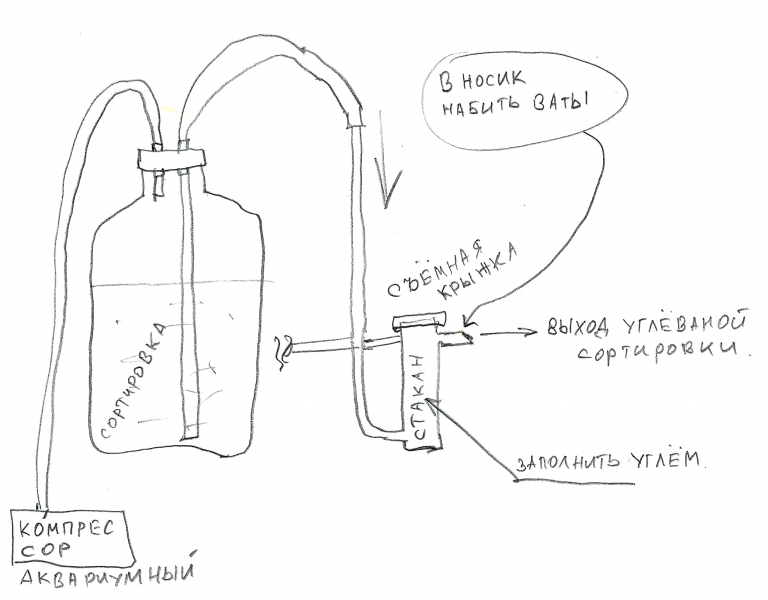 В НОСИК
НАБИТЬ ВАТЫ
СЪЁМНАЯ
КРЫЖКА
ВЫХОД УГЛЁВАНОЙ
СОРТИРОВКИ.
СОРТИРОВКА
СТАКАН
ЗАПОЛНИТЬ УГЛЁМ.
КОМПРЕС
СОР
АКВАРИУМНЫЙ